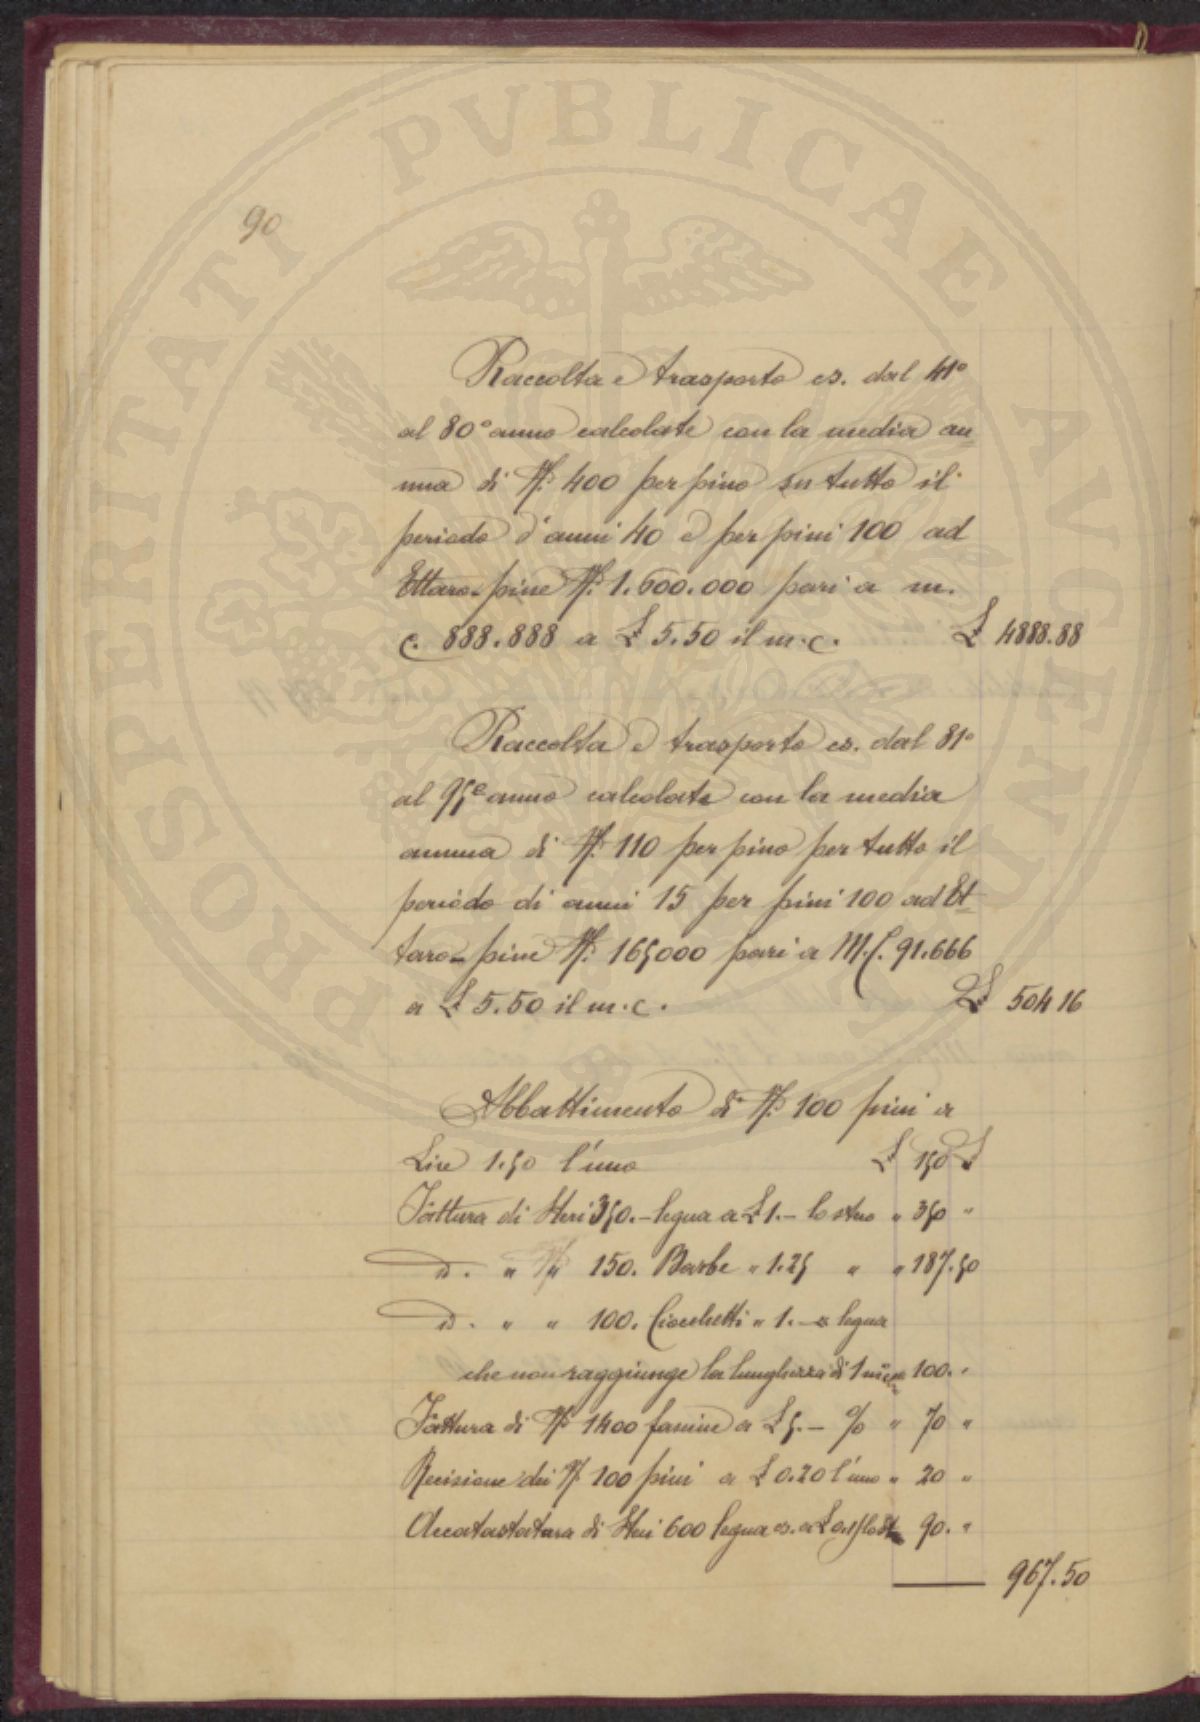 90
Raccolta e trasporto cs. dal 41°
al 80° anno calcolate con la media an
nua di N. 400 per pino su tutto il
periodo d'anni 40 e per pini 100 ad
Ettaro - pine N. 1.600.000 pari a m.
c. 888.888 a £ 5.50 il m.c. £ 4888.88
Raccolta e trasporto cs. dal 81°
al 95° anno calcolate con la media
annua di N. 110 per pino per tutto il
periodo di anni 15 per pini 100 ad Et
taro - pine N. 165000 pari a M.C. 91.666
a £ 5.50 il m.c. £ 504 16
Abbattimento di N. 100 pini a
Lire 1.50 l'uno £ 150 £
Fattura di Steri 350.- legna a £ 1.- lo stero " 350 "
id. " " 150. Barbe " 1.25 " " 187.50
id. " " 100. Ciocchetti " 1.- legna
che non raggiunge la lunghezza di 1 100. "
Fattura di N. 1400 fascine a £ 5.- % " 70 "
Recisione dei N. 100 pini a £ 0.20 l'uno " 20 "
Accatastatura di Steri 600 legna cs. a £ 0.15 lo St. 90. "
967.50
PROSPERITATI PVBLICAE AVGENDAE